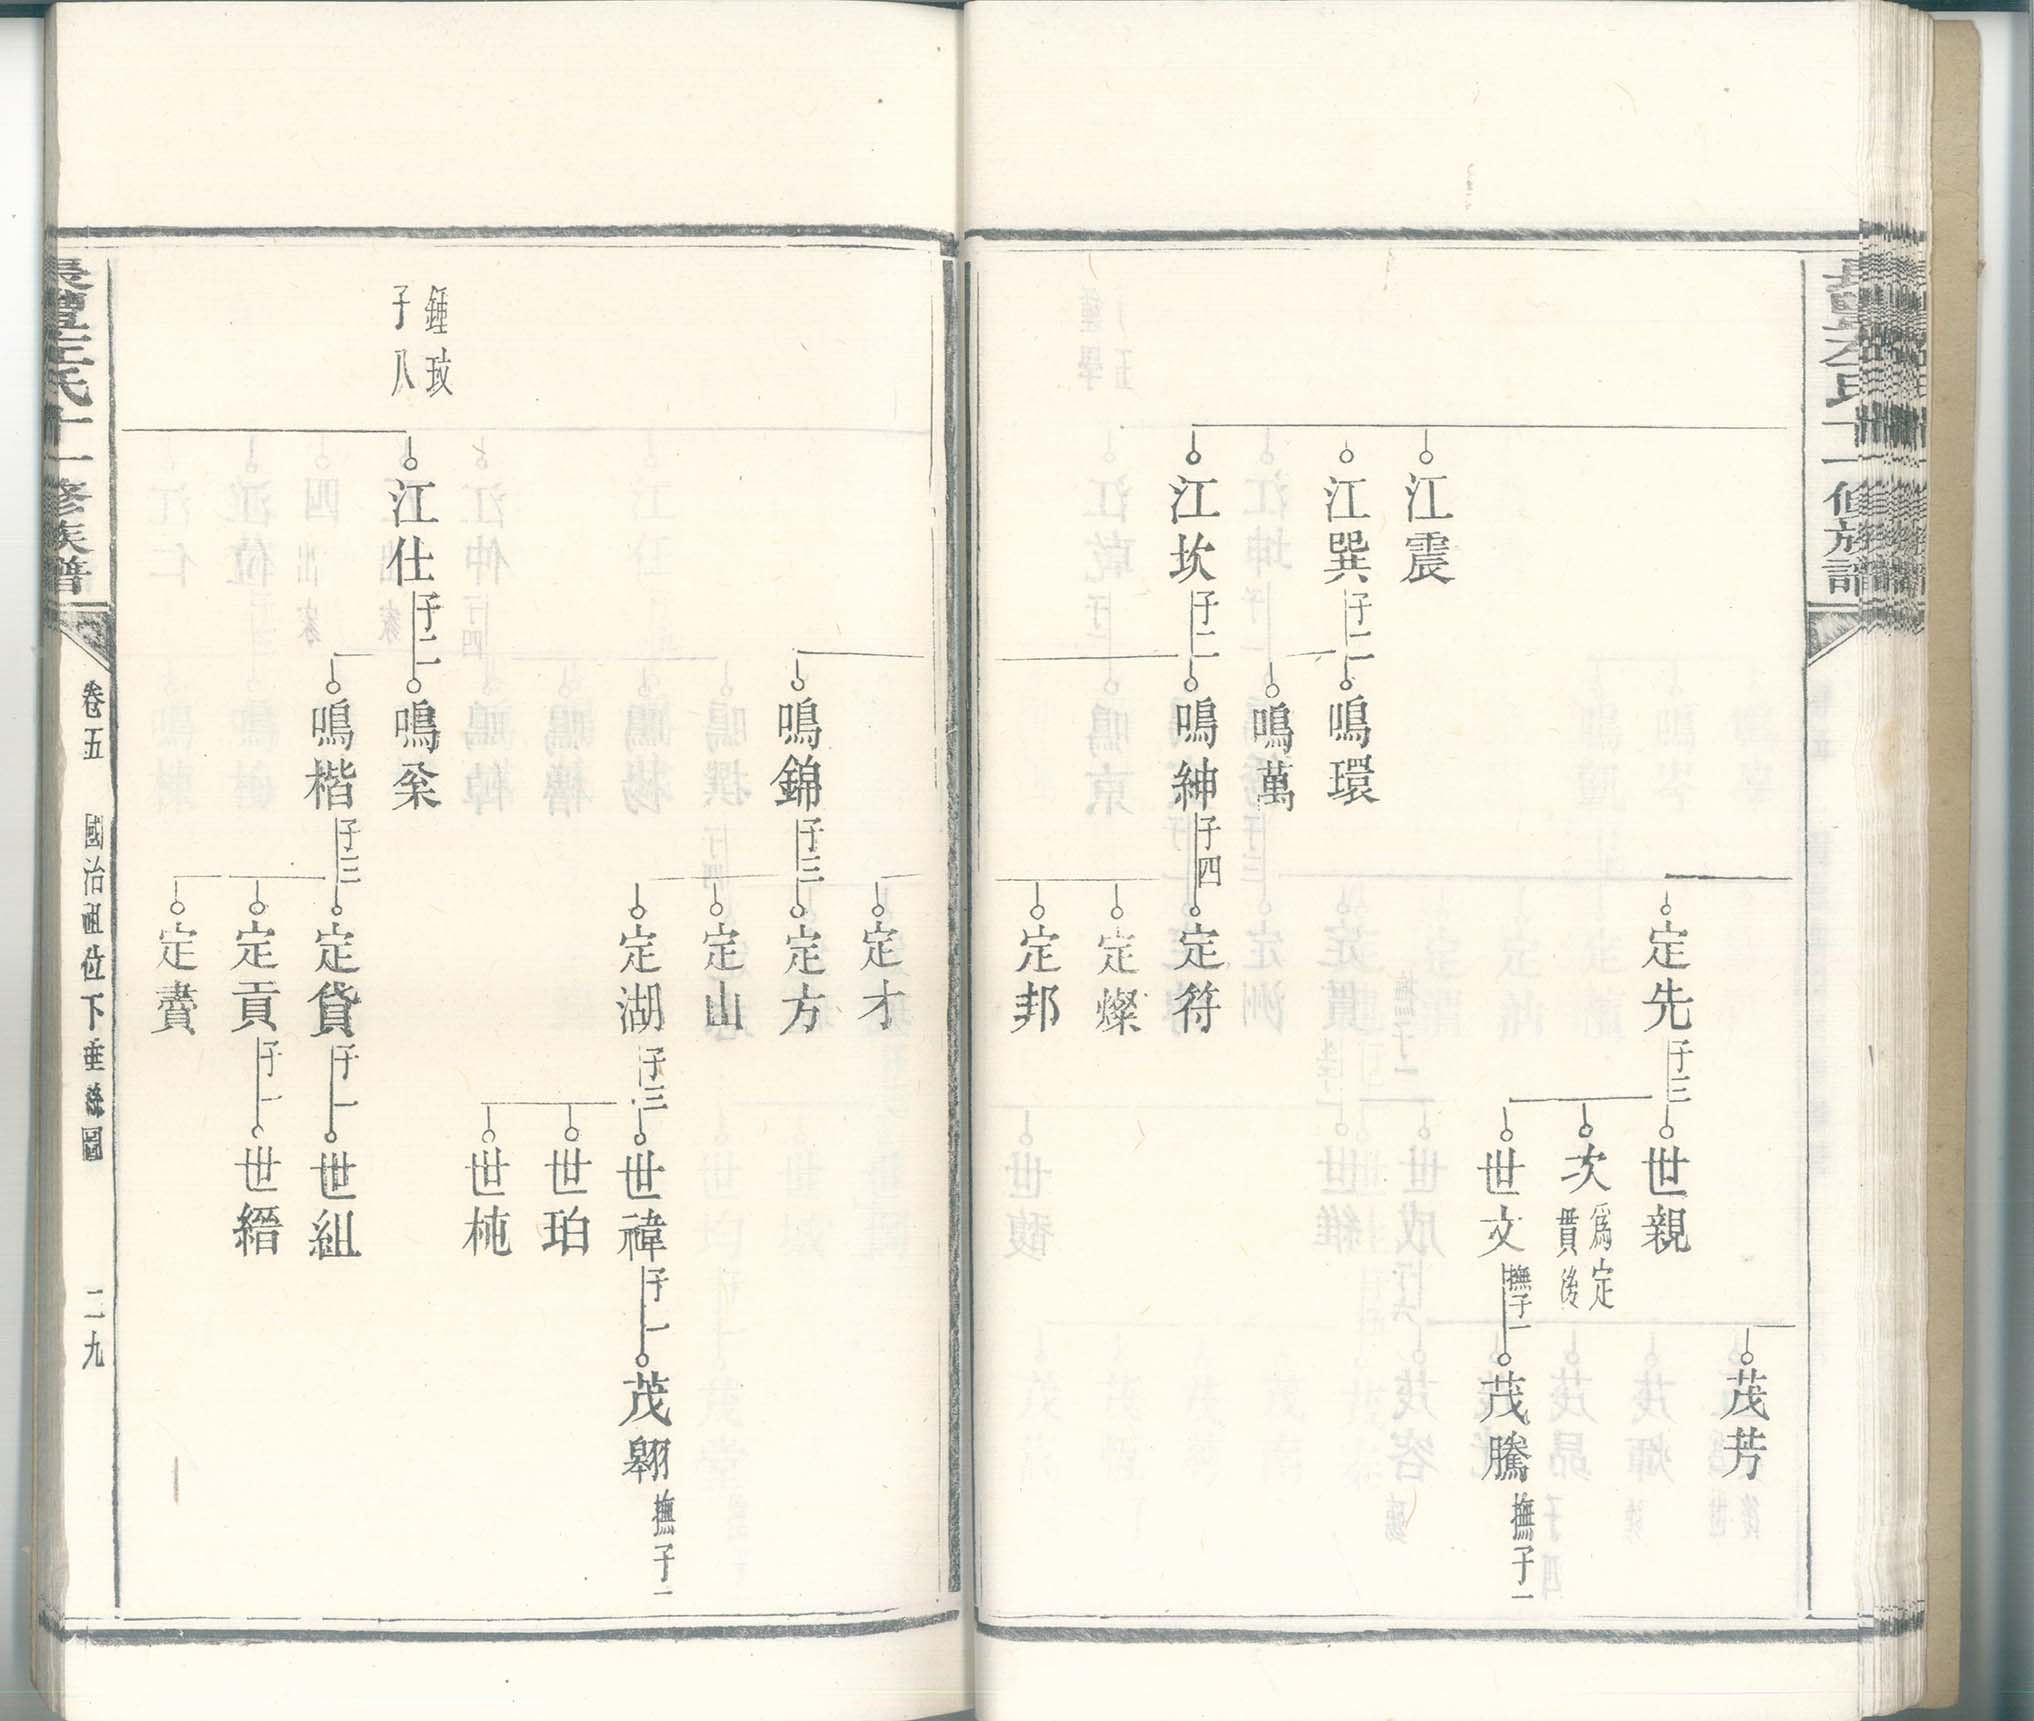 江震
江巽
子二
江坎
子二
鳴環
鳴萬
鳴紳
子四
定先
子三
定符
定燦
定邦
世親
次
爲定
貫後
世文
撫子一
茂芳
茂騰
撫子一
鍾玫
子八
江仕
子二
鳴錦
子三
鳴楷
子三
定才
定方
定山
定湖
子三
定貸
子一
定貢
子一
世禕
子一
世珀
世杶
世組
世縉
茂翱
撫子一
氏十一修族譜
卷五
國治祖位下垂絲圖
二九